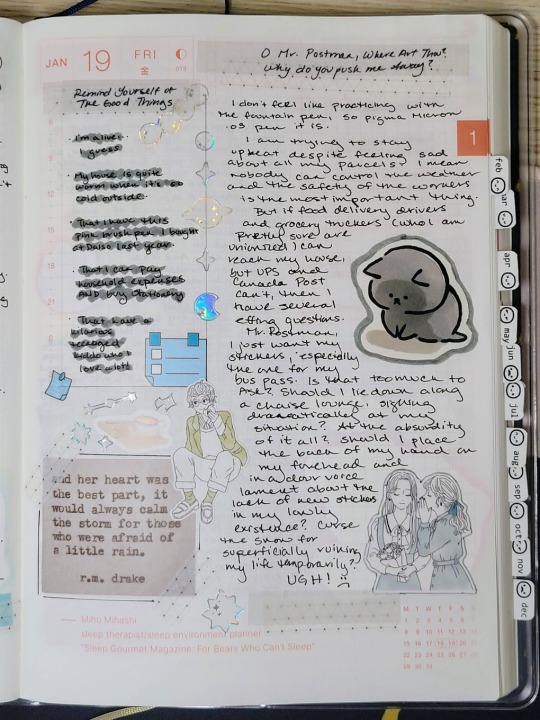 JAN 19 FRI
金
019
O Mr. Postman, Where Art Thou?
Why do you push me away?
Remind Yourself of
The Good Things
I'm alive.
I guess
My house is quite
warm when it's so
cold outside.
That I have this
pink brush pen I bought
at Daiso last year.
That I can pay
household expenses
AND buy stationery
That have a
hilarious
teenaged
kiddo who I
love a lot!
I don't feel like practicing with
the fountain pen, so pigma micron
.05 pen it is.
I am trying to stay
upbeat despite feeling sad
about all my parcels. I mean
nobody can control the weather
and the safety of the workers
is the most important thing.
But if food delivery drivers
and grocery truckers (who I am
pretty sure are
unionized) can
reach my house,
but UPS and
Canada Post
can't, then I
have several
effing questions.
Mr. Postman,
I just want my
stickers, especially
the one for my
bus pass. Is that too much to
ask? Should I lie down along
a chaise lounge, sighing
dramatically at my
situation? At the absurdity
of it all? Should I place
the back of my hand on
my forehead and
in a dour voice
lament about the
lack of new stickers
in my lowly
existence? Curse
the snow for
superficially ruining
my life temporarily?
UGH!
and her heart was
the best part, it
would always calm
the storm for those
who were afraid of
a little rain.
r.m. drake
Miho Mihashi
sleep therapist/sleep environment planner
"Sleep Gourmet Magazine: For Bears Who Can't Sleep"
1
feb
mar
apr
may
jun
jul
aug
sep
oct
nov
dec
M T W T F S S
1 2 3 4 5 6 7
8 9 10 11 12 13 14
15 16 17 18 19 20 21
22 23 24 25 26 27 28
29 30 31